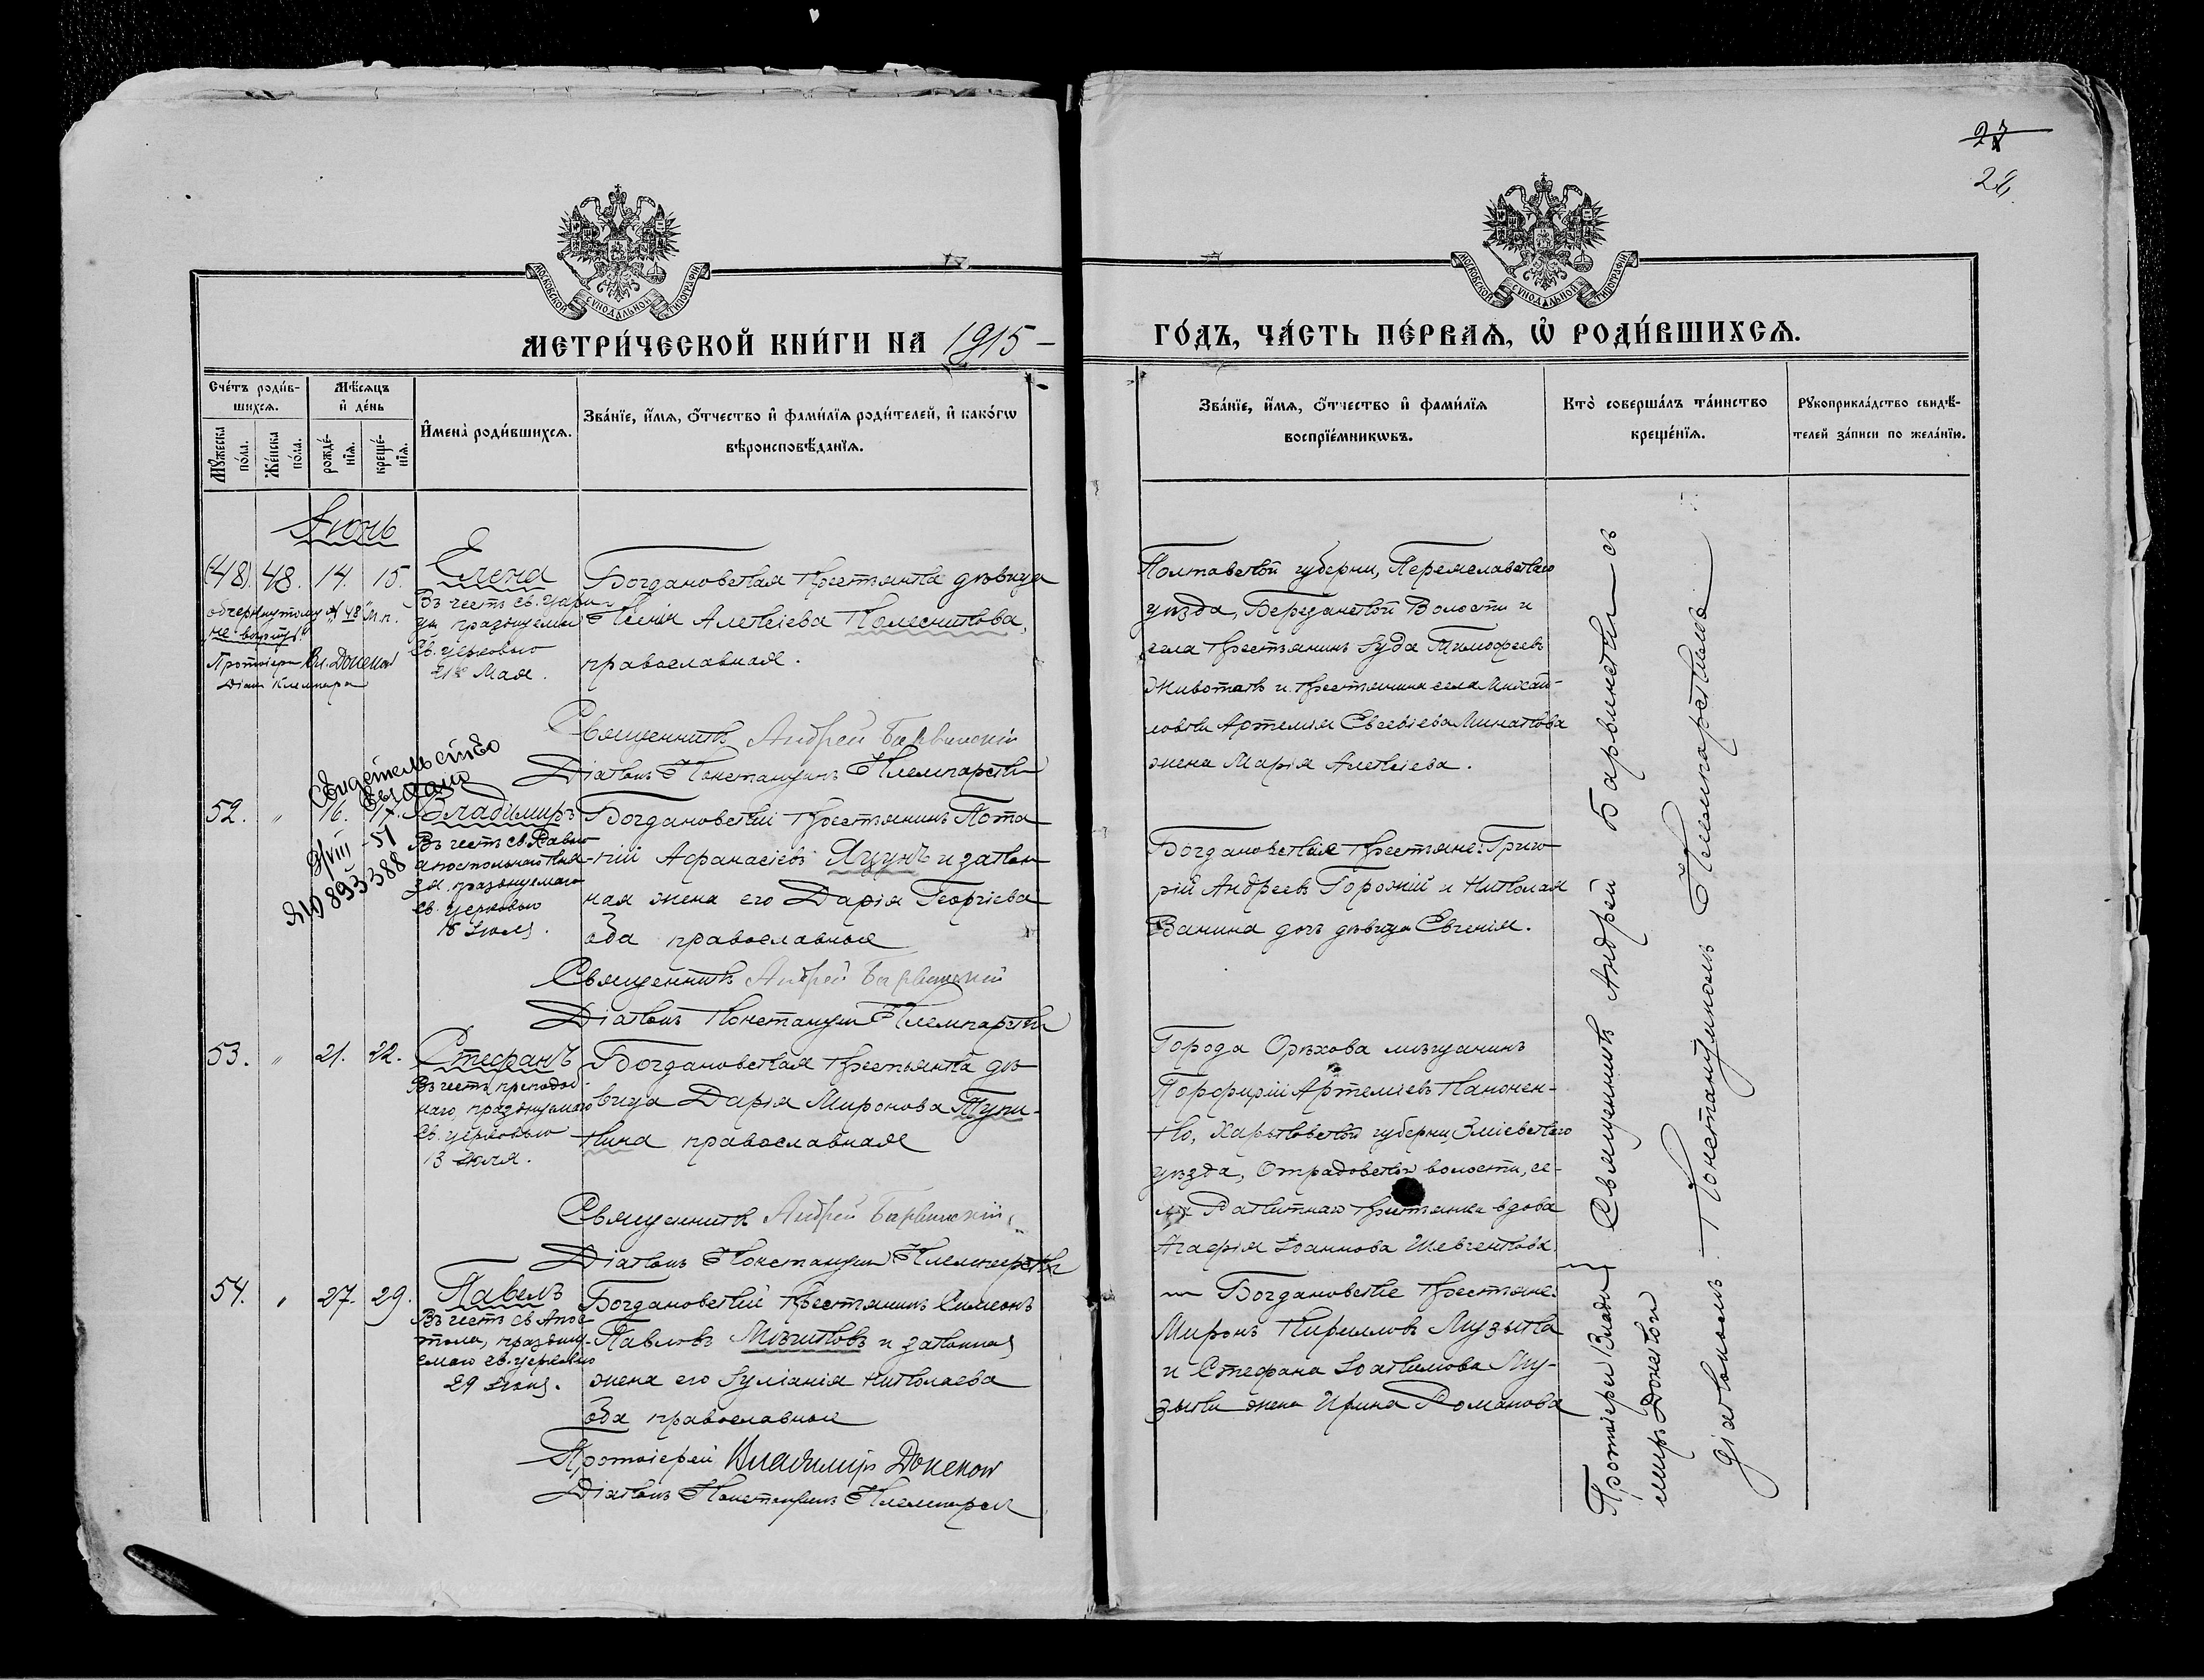 27
26
МОСКОВСКОЙ СУНОДАЛЬНОЙ ТИПОГРАФІИ
МОСКОВСКОЙ СУНОДАЛЬНОЙ ТИПОГРАФІИ
МЕТРИ́ЧЕСКОЙ КНИ́ГИ НА 1915 –
ГО́ДЪ, ЧА́СТЬ ПЕ́РВАѦ, Ѡ҆ РОДИ́ВШИХСѦ.
Сче́тъ роди́в-
шихсѧ.
Мѣ́сѧцъ
и҆ де́нь
Мꙋ́жеска по́ла.
Же́нска по́ла.
рожде́-нїѧ.
креще́-нїѧ.
И҆мена̀ роди́вшихсѧ.
Зва́нїе, и҆́мѧ, о҆́тчество и҆ фами́лїѧ роди́телей, и҆ како́гѡ
вѣроисповѣ́данїѧ.
Зва́нїе, и҆́мѧ, о҆́тчество и҆ фами́лїѧ
воспрїе́мникѡвъ.
Кто̀ соверша́лъ та́инство
креще́нїѧ.
Рꙋкоприкла́дство свидѣ́-
телей за́писи по жела́нїю.
Іюнь
(48). 48. 14. 15. Елена
Въ честь св. цари-
цы празднуемой
Св. церковью
21го Мая.
обчеркнутому № "48" м.п.
не вѣрить
Протоіерей Вл. Донсков
Діак. Клемпарс
Богдановская крестьянка дѣвица
Ксенія Алексіева Колесникова,
православная.
Священникъ Андрей Барвинскій
Діаконъ Константинъ Клемпарскій
Полтавской губерніи, Переяславскаго
уѣзда, Березанской Волости и
села крестьянинъ Іуда Тимофеевъ
Животакъ и крестьянина села Михай-
ловки Артемія Евсевіева Минакова
жена Марія Алексіева.
Свидетельство
выдано
9/VIII – 51
ЯЮ 893388
52. " 16. 17. Владимиръ
Въ честь св. Равно
апостольнаго Кня-
зя празднуемаго
св. церковью
15 Іюля.
Богдановскій крестьянинъ Пота-
пій Афанасіевъ Яцунъ и закон-
ная жена его Дарія Георгіева
оба православные
Священникъ Андрей Барвинскій
Діаконъ Константинъ Клемпарскій
Богдановскіе крестьяне: Григо-
рій Андреевъ Горожій и Николая
Ванина дочь дѣвица Евгенія.
53. " 21. 22. Стефанъ
Въ честь преподоб-
наго празднуемаго
Св. церковью
13 Іюля.
Богдановская крестьянка дѣ-
вица Дарія Миронова Тупи-
кина православная
Священникъ Андрей Барвинскій
Діаконъ Константинъ Клемпарскій
Города Орѣхова мѣщанинъ
Порфирій Артеміевъ Канонен-
ко, Харьковской губерніи, Зміевскаго
уѣзда, Отрадовской волости, се-
ла Ракитнаго крестьянка вдова
Агафія Іоаннова Шевченкова.
54. " 27. 29. Павелъ
Въ честь св. Апос-
тола, праздну-
емаго св. церковью
29 Іюня.
Богдановскій крестьянинъ Симеонъ
Павловъ Мѣчиковъ и законная
жена его Іуліанія Николаева
оба православные
Протоіерей Владимиръ Донсков
Діаконъ Константинъ Клемпарск
Богдановскіе крестьяне:
Миронъ Кирилловъ Музыка
и Стефана Іоакимова Му-
зыки жена Ирина Романова
Священникъ Андрей Барвинскій съ
Протоіерей Влади-
миръ Донсков
діакономъ Константиномъ Клемпарскимъ